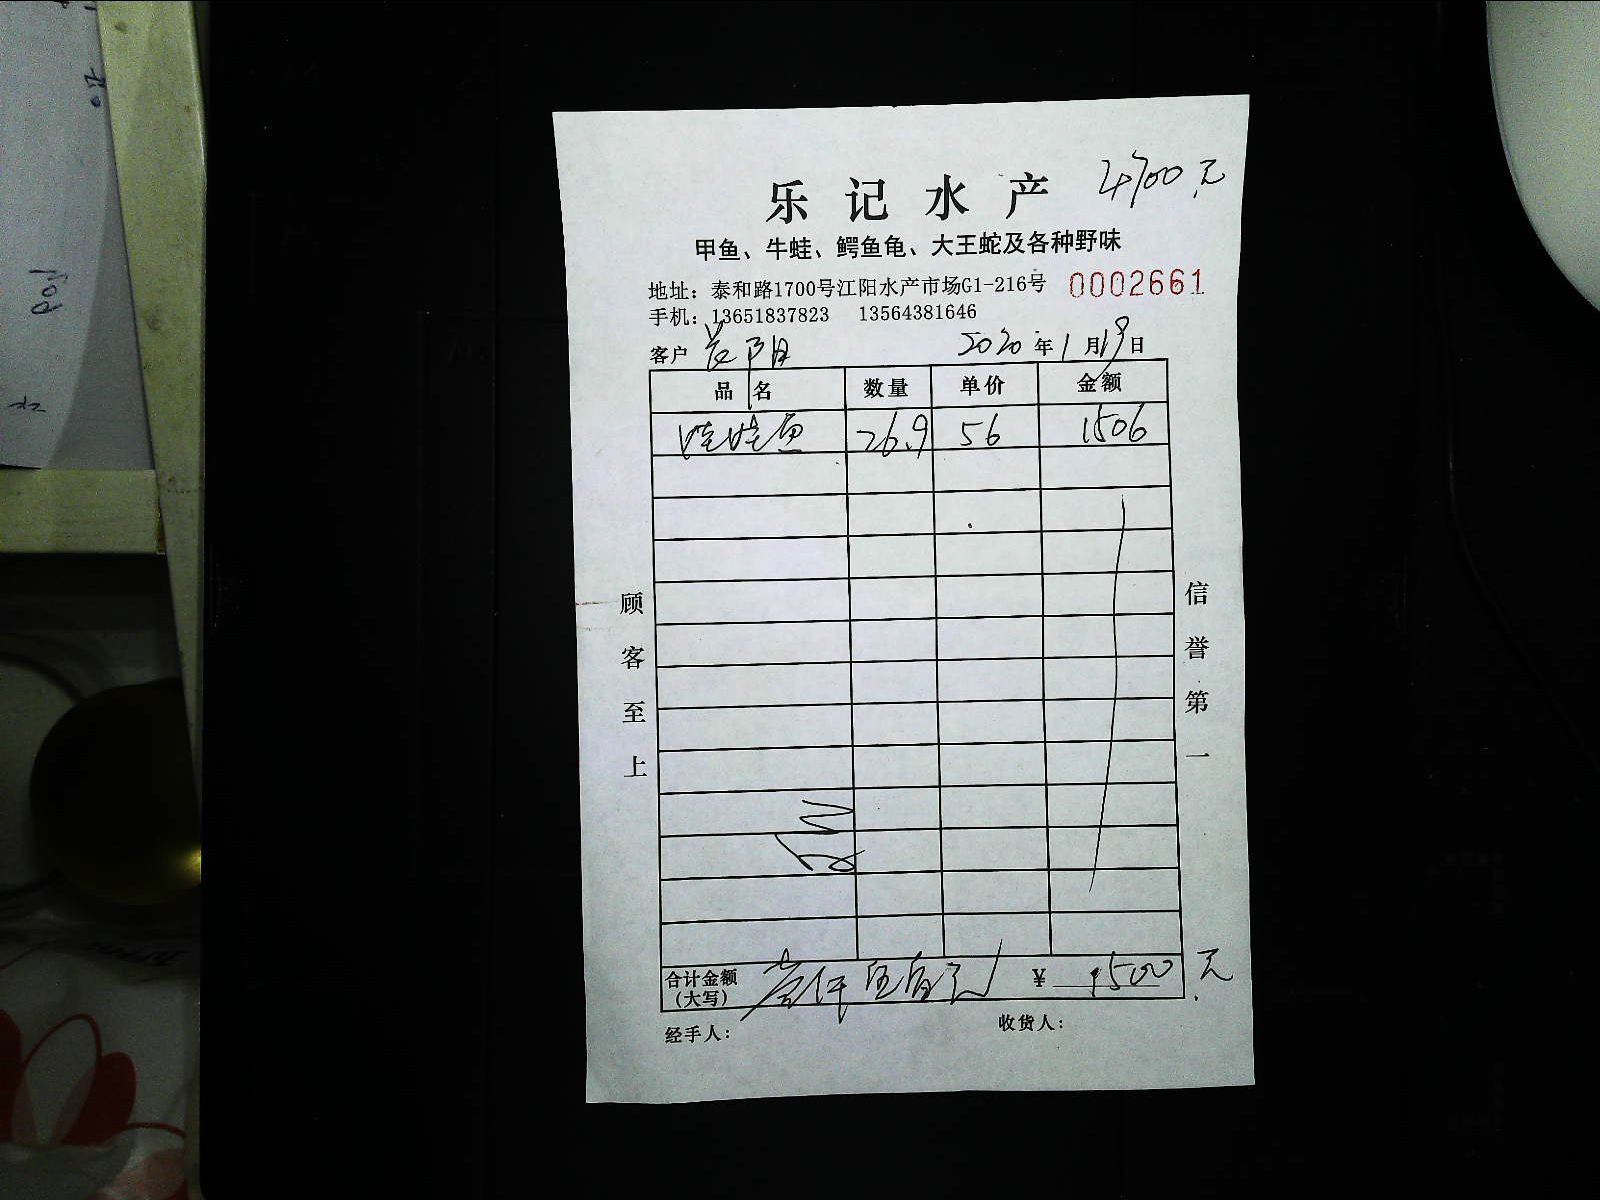 4700元
乐记水产
甲鱼、牛蛙、鳄鱼龟、大王蛇及各种野味
地址：泰和路1700号江阳水产市场G1-216号 0002661
手机：13651837823 13564381646
客户 2020年1月19日
品名 数量 单价 金额
娃娃鱼 26.9 56 1506
顾客至上
信誉第一
合计金额（大写） 壹仟伍佰元 ¥ 1500元
经手人： 收货人：